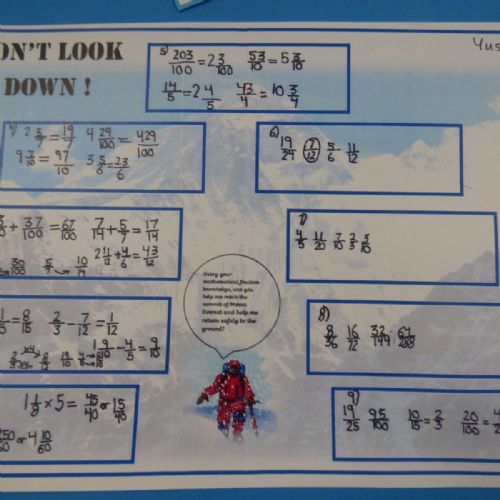 ON'T LOOK
DOWN!
Yus
5) 203/100 = 2 3/100 53/10 = 5 3/10
14/5 = 2 4/5 43/4 = 10 3/4
2 5/7 = 19/7 4 29/100 = 429/100
9 7/10 = 97/10 3 5/6 = 23/6
6) 19/24 7/12 5/6 11/12
+ 37/100 = 67/100 7/14 + 5/7 = 17/14
30/100 5/7 → 10/14 2 11/12 + 4/6 = 43/12
7)
4/5 11/20 7/10 2/3 3/10
Using your
mathematical fraction
knowledge, can you
help me reach the
summit of Mount
Everest and help me
return safely to the
ground?
1/5 = 8/15 2/3 - 7/12 = 1/12
1 9/10 - 4/5 = 9/10
8)
8/36 16/72 32/144
1 1/8 × 5 = 45/40 or 15/40
250/60 or 4 10/60
9)
19/25 95/100 10/15 = 2/3 20/100 = 4/2